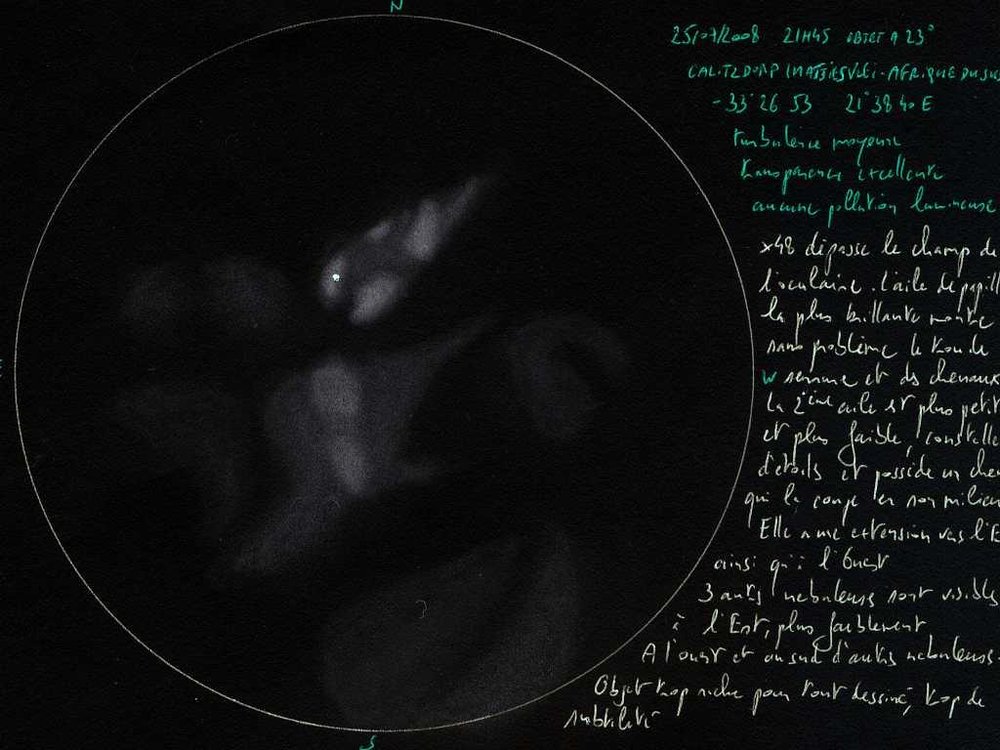 N
25/07/2008 21H45 OBJET A 23°
CALITZDORP - AFRIQUE DU SU
-33°26 53 21°38 40 E
turbulence moyenne
transparence excellente
aucune pollution lumineuse
x48 dépasse le champ de
l'oculaire. L'aile de papill
la plus brillante montre
sans problème le trou de
W serrure et des chenaux
la 2ème aile est plus petit
et plus faible, constellé
d'étoiles et possède un chen
qui la coupe en son milieu
Elle a une extension vers l'E
ainsi qu'à l'Ouest
3 autres nebuleuses sont visibles
à l'Est, plus faiblement
A l'ouest et au sud d'autres nebuleuses
Objet trop riche pour tout dessiner, trop de
subtilité
S